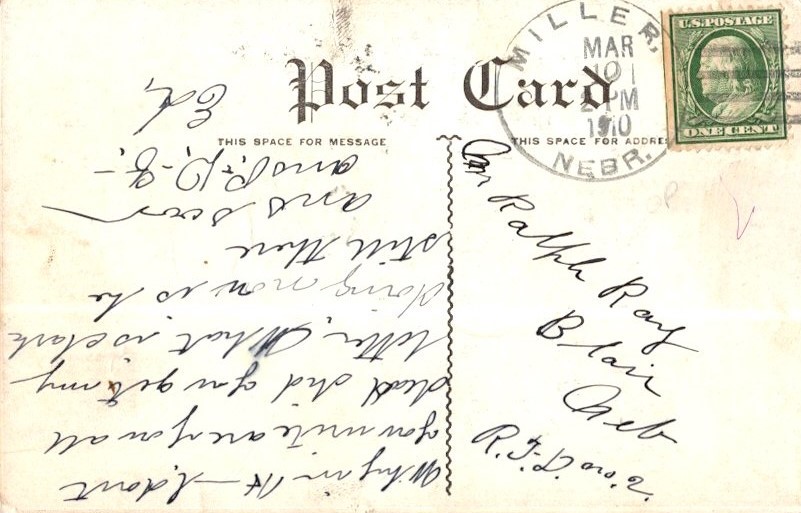 Post Card
THIS SPACE FOR MESSAGE
THIS SPACE FOR ADDRE
MILLER,
MAR
10
2 PM
1910
NEBR.
U.S. POSTAGE
ONE CENT
Mr Ralph Ray
Blair
Neb
R.F.D. no. 2.
Why in H— I, dont
you write are you all
dead did you get my
letter, What is clark
doing now is he
still there
ans soon
ans. P.D.Q.–
Ed,